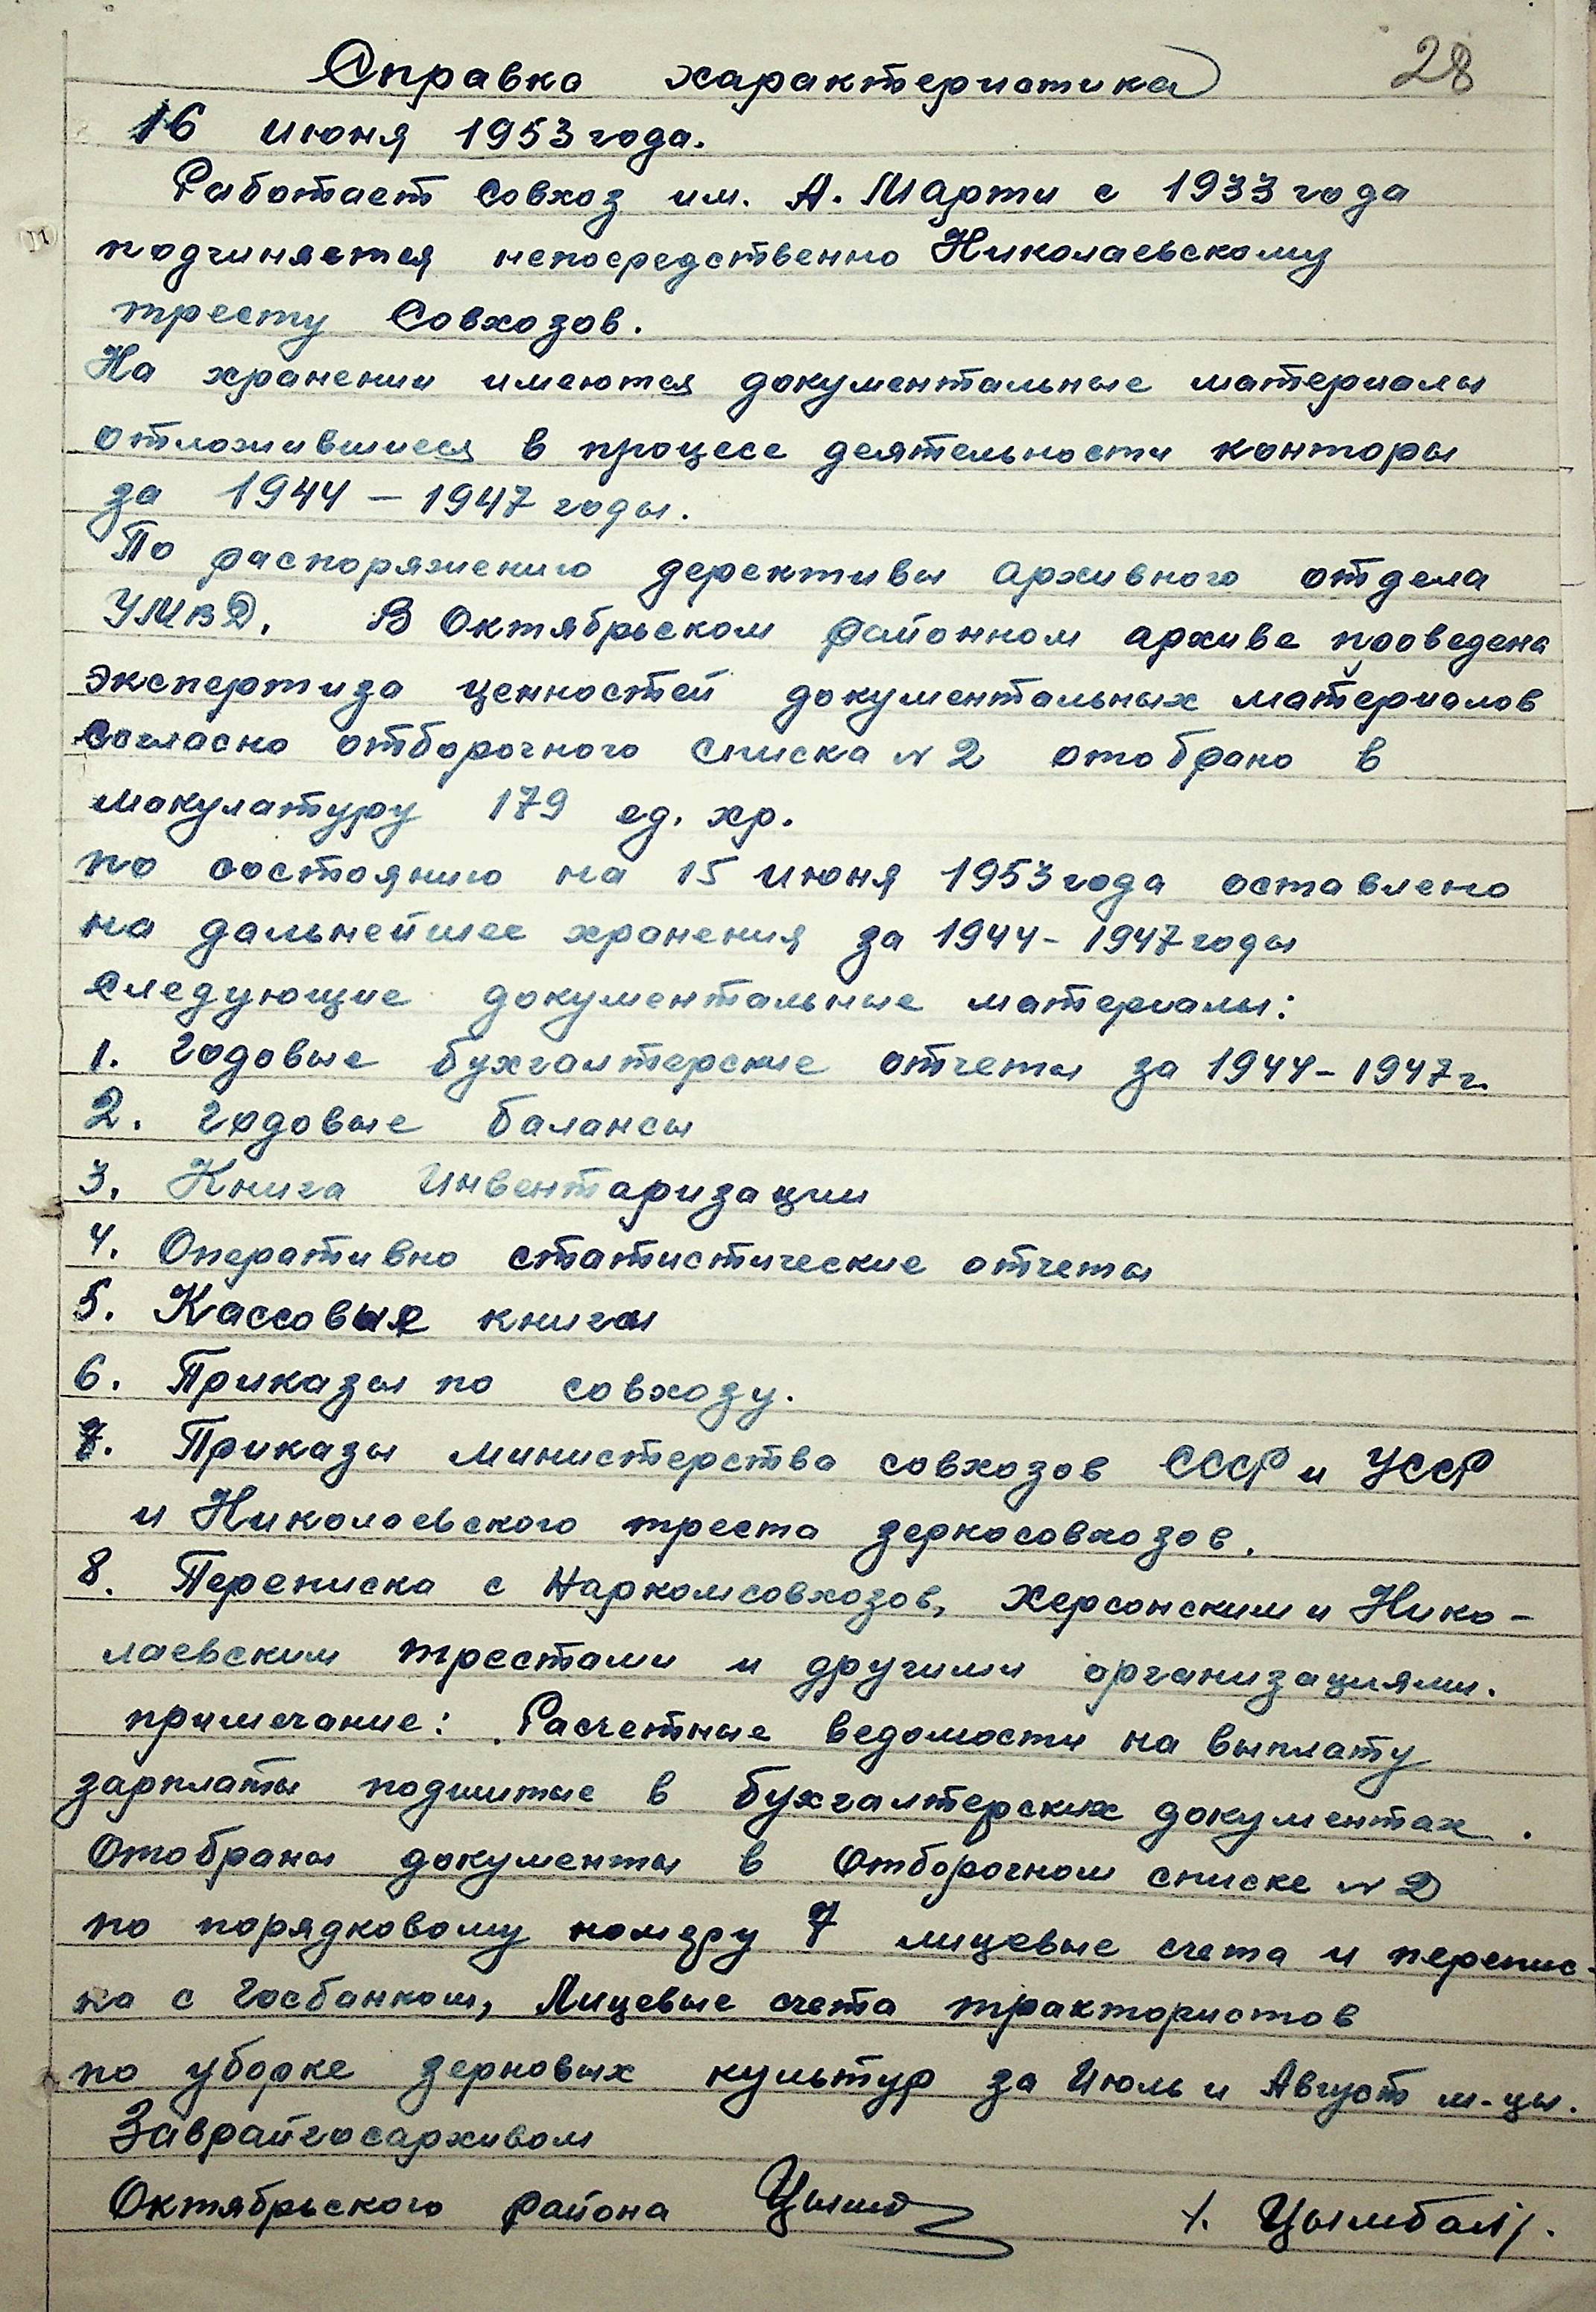 28
Справка характеристика
16 июня 1953 года.
Работает Совхоз им. А. Марти с 1933 года
подчиняется непосредственно Николаевскому
тресту Совхозов.
На хранении имеются документальные материалы
отложившиеся в процесе деятельности конторы
за 1944 – 1947 годы.
По распоряжению дерективы архивного отдела
УМВД. В Октябрьском районном архиве проведена
экспертиза ценностей документальных материалов
согласно отборочного списка № 2 отобрано в
макулатуру 179 ед. хр.
по состоянию на 15 июня 1953 года оставлено
на дальнейшее хранения за 1944 - 1947 годы
следующие документальные материалы:
1. Годовые бухгалтерские отчеты за 1944 - 1947 г.
2. Годовые балансы
3. Книга Инвентаризации
4. Оперативно статистические отчеты
5. Кассовые книги
6. Приказы по совхозу.
7. Приказы министерства совхозов СССР и УССР
и Николаевского треста зерносовхозов.
8. Переписка с Наркомсовхозов, Херсонским и Нико-
лаевским трестами и другими организациями.
примечание: Расчетные ведомости на выплату
зарплаты подшитые в бухгалтерских документах.
Отобраны документы в Отборочном списке № 2
по порядковому номеру 7 лицевые счета и перепис-
ка с Госбанком, Лицевые счета трактористов
по уборке зерновых культур за Июль и Август м-цы.
Заврайгосархивом
Октябрьского района Цымб /. Цымбал/.